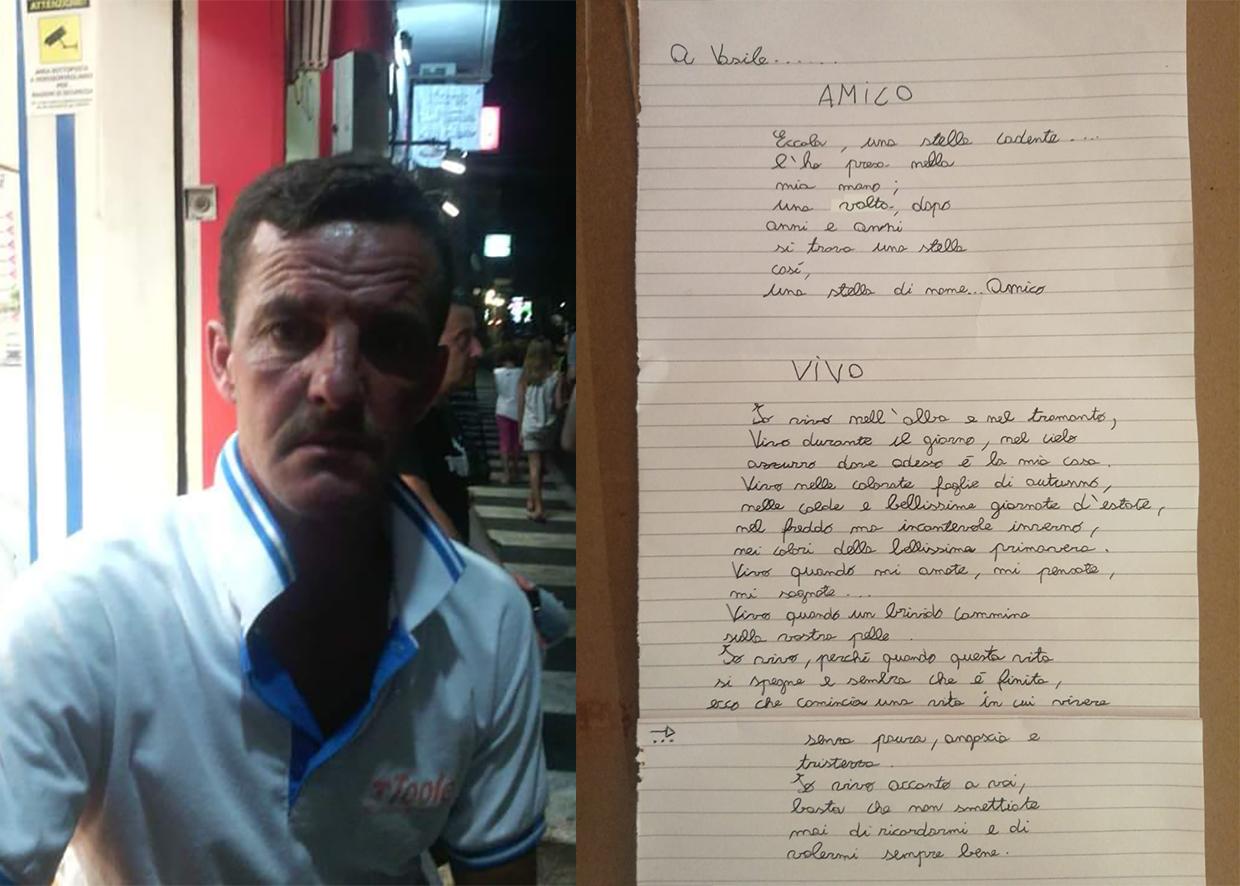 ATTENZIONE!
AREA SOTTOPOSTA
A VIDEOSORVEGLIANZA
PER
RAGIONI DI SICUREZZA
A Vasile......
AMICO
Eccola, una stella cadente....
l'ho presa nella
mia mano;
una volta, dopo
anni e anni
si trova una stella
così,
una stella di nome...Amico
VIVO
Io vivo nell'alba e nel tramonto,
Vivo durante il giorno, nel cielo
azzurro dove adesso è la mia casa.
Vivo nelle colorate foglie di autunno,
nelle calde e bellissime giornate d'estate,
nel freddo ma incantevole inverno,
nei colori della bellissima primavera.
Vivo quando mi amate, mi pensate,
mi sognate...
Vivo quando un brivido cammina
sulla vostra pelle.
Io vivo, perché quando questa vita
si spegne e sembra che è finita,
ecco che comincia una vita in cui vivere
senza paura, angoscia e
tristezza.
Io vivo accanto a voi,
basta che non smettiate
mai di ricordarmi e di
volermi sempre bene.